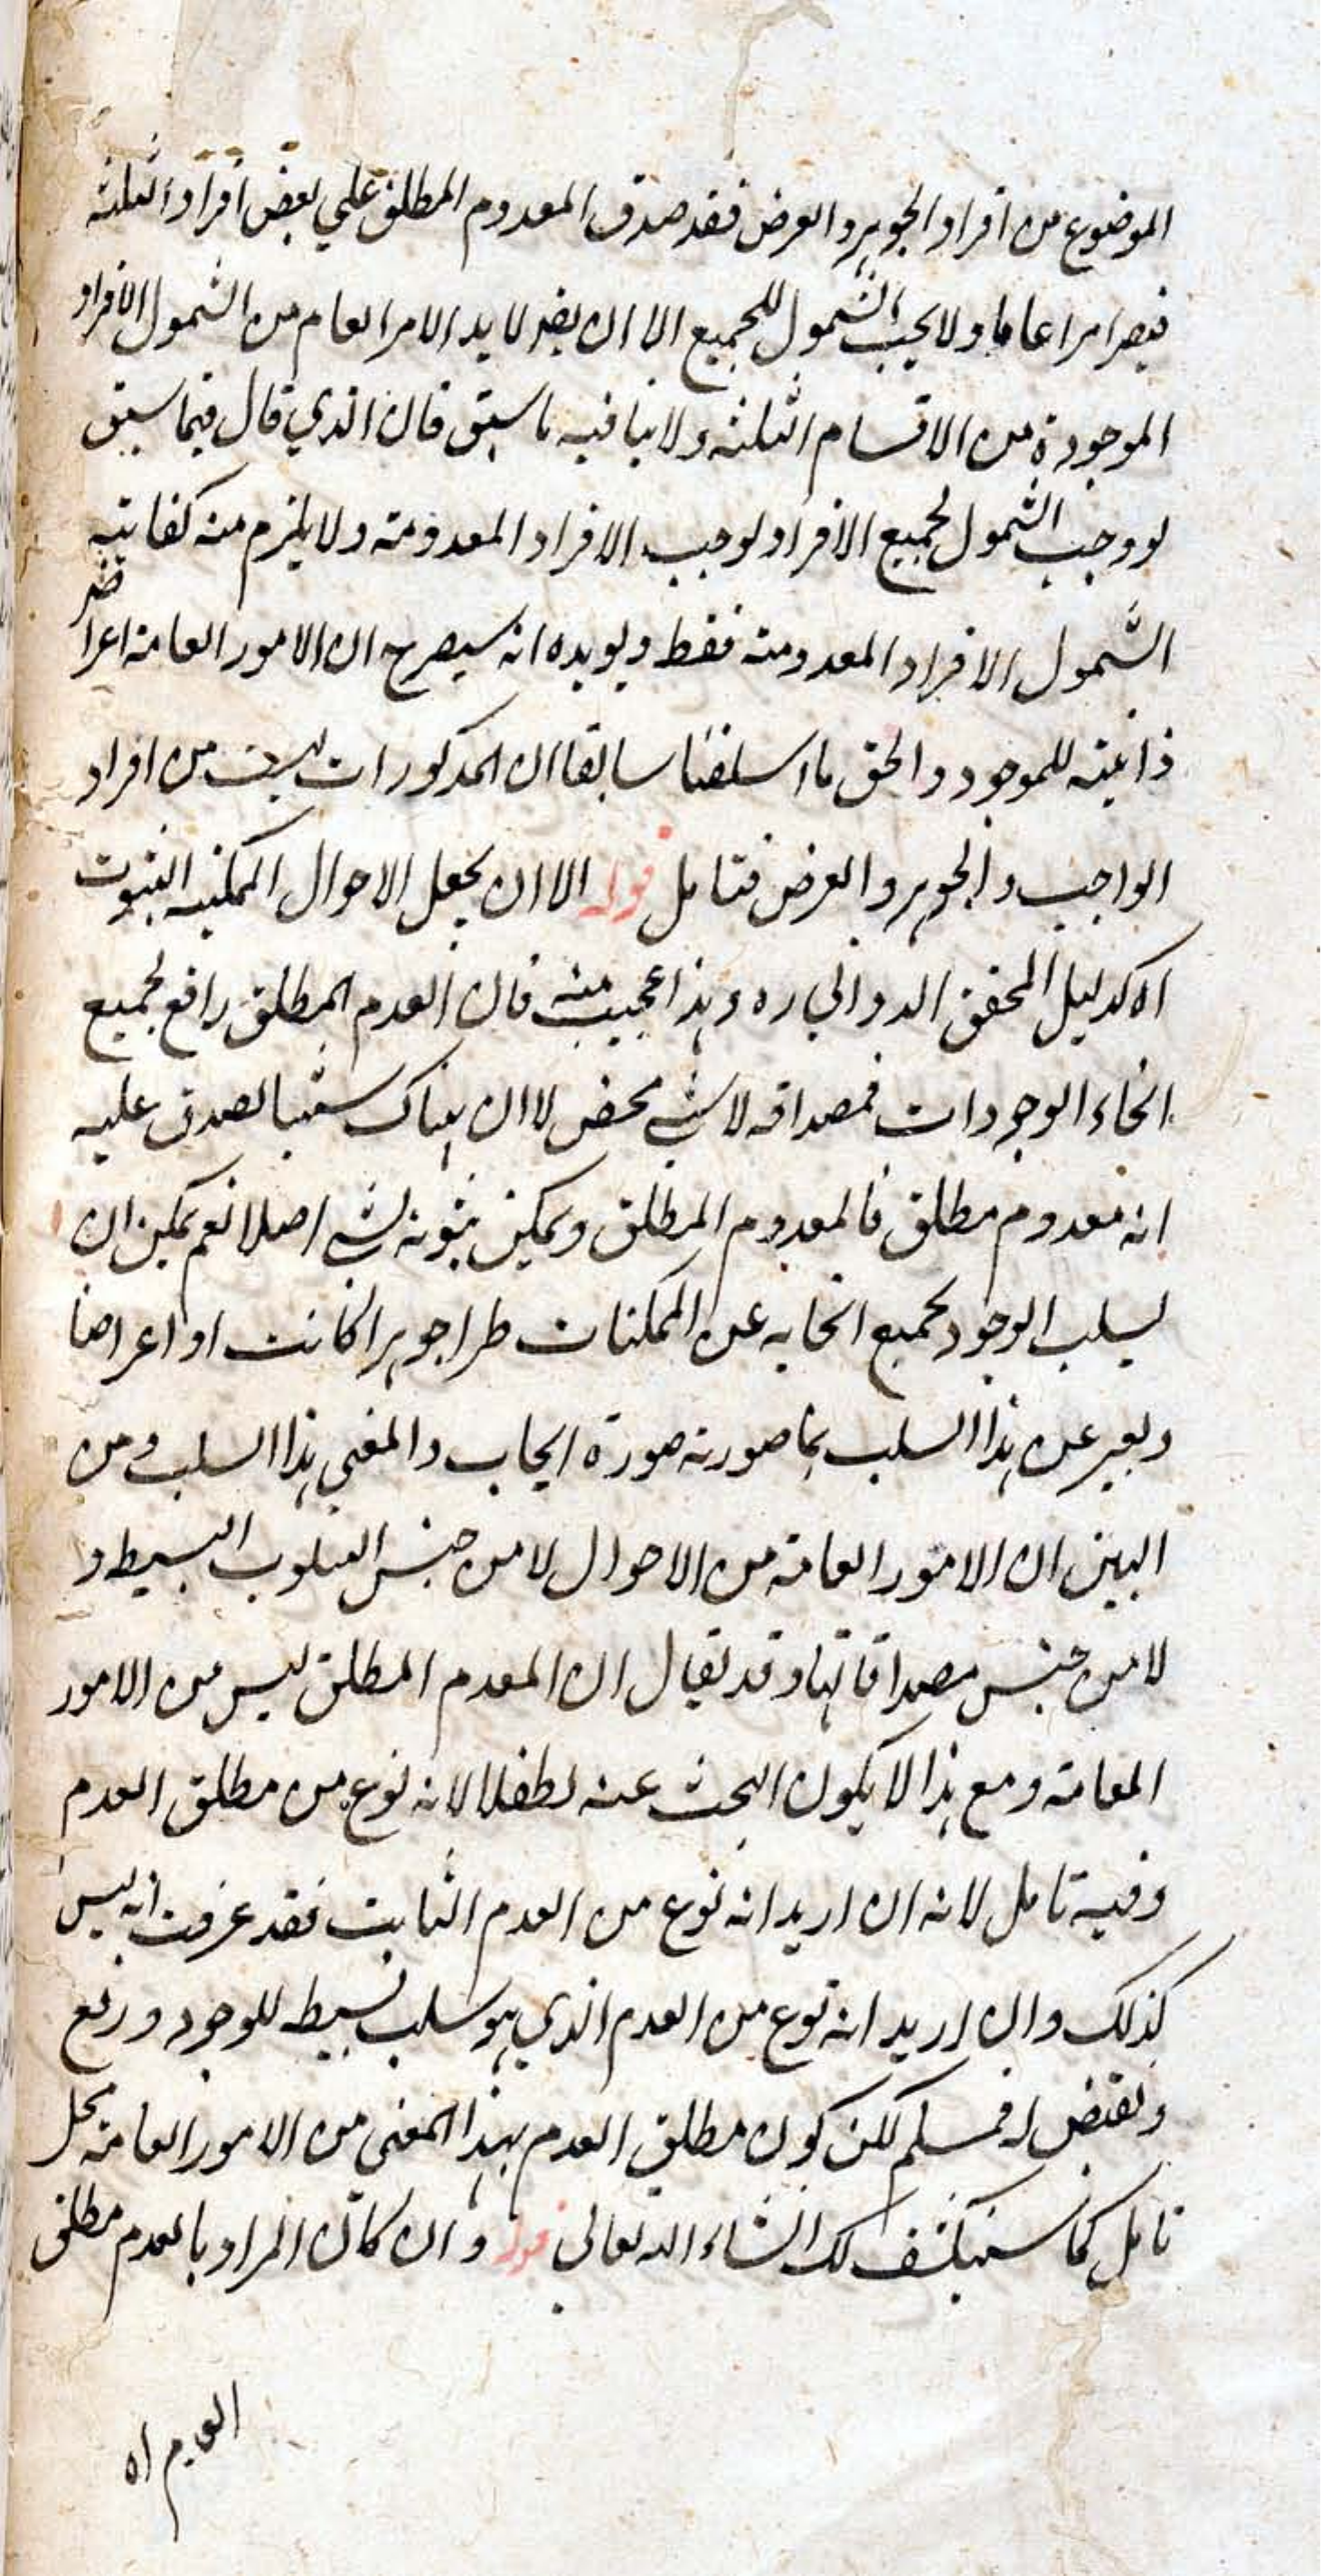 الموضوع من افراد الجوهر والعرض فقد صدق المعدوم المطلق علي بعض افراد الثلثة
فيصر امرا عاما ولا يجب الشمول للجميع الا ان يضر لا بد الامر العام من الشمول الافراد
الموجودة من الاقسام الثلثة ولا ينافيه ما سبق فان الذي قال فيما سبق
لو وجب الشمول لجميع الافراد لوجب الافراد المعدومة ولا يلزم منه كفايته
الشمول الافراد المعدومة فقط ويويده انه سيصرح ان الامور العامة اعراض
ذاتية للموجود والحق ما اسلفنا سابقا ان المذكورات ليست من افراد
الواجب والجوهر والعرض فتامل قوله الا ان يجعل الاحوال الممكنة الثبوت
اه كدليل المحقق الدواني ره وهذا عجيب منه فان العدم المطلق رافع لجميع
انحاء الوجودات فمصداقه لا شئ محض لا ان هناك شيئا يصدق عليه
انه معدوم مطلق فالمعدوم المطلق ويمكن ثبوته لشي اصلا نعم يمكن ان
يسلب الوجود بجميع انحايه عن الممكنات طرا جوهرا كانت او اعراضا
ويعبر عن هذا السلب بما صورته صورة ايجاب والمعني هذا السلب ومن
البين ان الامور العامة من الاحوال لا من جنس السلوب البسيط و
لا من جنس مصداقاتها وقد يقال ان المعدم المطلق ليس من الامور
العامة ومع هذا لا يكون البحث عنه تطفلا لانه نوع من مطلق العدم
وفيه تامل لانه ان اريد انه نوع من العدم الثابت فقد عرفت انه ليس
كذلك وان اريد انه نوع من العدم الذي هو سلب بسيط للوجود ورفع
ونقيض له فمسلم لكن كون مطلق العدم بهذا المعني من الامور العامة محل
تامل كما سينكشف لك انشاء الله تعالي قوله وان كان المراد بالعدم مطلق
العدم اه